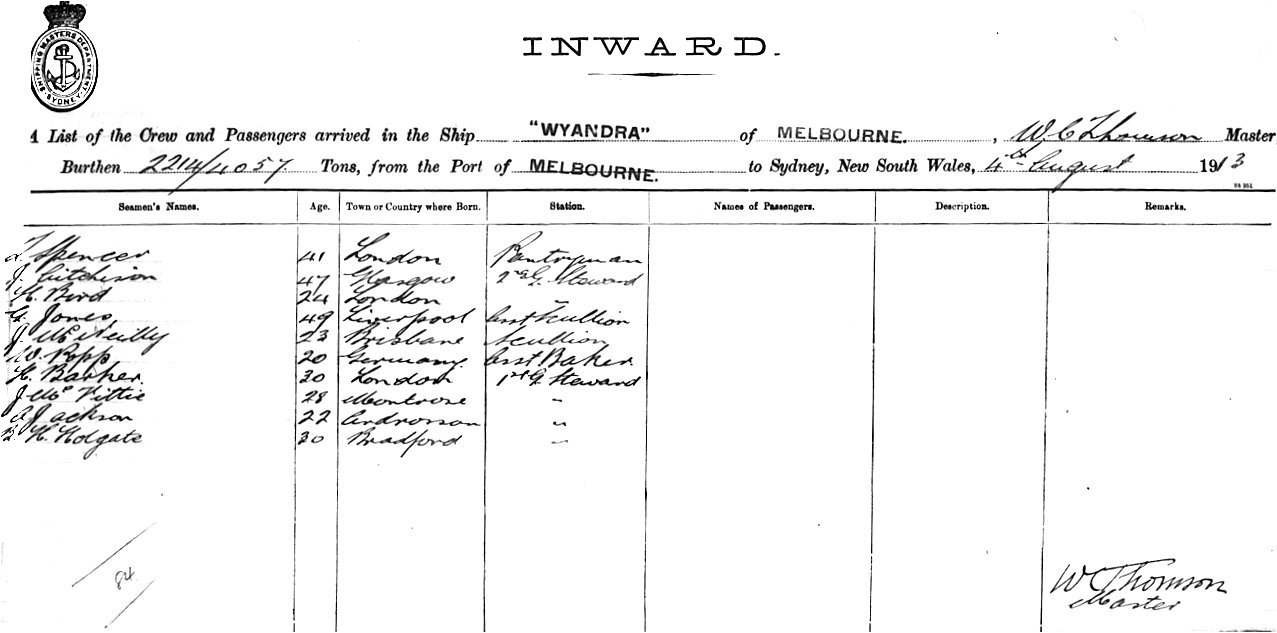 SHIPPING MASTERS DEPARTMENT. SYDNEY.
INWARD.
A List of the Crew and Passengers arrived in the Ship "WYANDRA" of MELBOURNE. , W C Thomson Master
Burthen 2214/4057 Tons, from the Port of MELBOURNE. to Sydney, New South Wales, 4th August 1913
Seamen's Names. Age. Town or Country where Born. Station. Names of Passengers. Description. Remarks.
Spencer 41 London Pantryman
J. Hutchison 47 Glasgow 2nd G. Steward
H. Bird 24 London "
G. Jones 49 Liverpool Asst Scullion
J. McNeilly 23 Brisbane Scullion
W. Popp 20 Germany Asst Baker
H. Barker 30 London 1st G Steward
J McVittie 28 Montrose "
A Jackson 22 Ardrossan "
H. Holgate 30 Bradford "
84
W C Thomson
Master